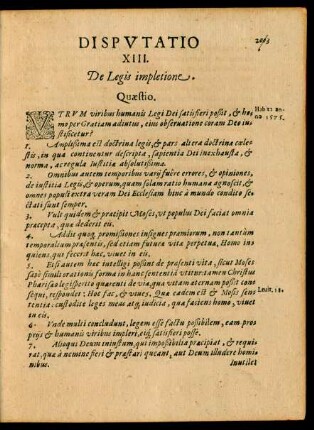 203
DISPVTATIO
XIII.
De Legis impletione.
Quæstio.
VTRVM viribus humanis Legi Dei satisfieri possit, & ho-
mo per Gratiam adiutus, eius obseruatione coram Deo iu-
stificetur?
Habita an-
no 1575.
1. Amplissima est doctrina legis, & pars altera doctrinæ cœle-
stis, in qua continentur descripta, sapientia Dei inexhausta, &
norma, ac regula iustitiæ absolutissima.
2. Omnibus autem temporibus varij fuêre errores, & opiniones,
de iustitia Legis, & operum, quam solam ratio humana agnoscit, &
omnes populi extra veram Dei Ecclesiam hinc à mundo condito se-
ctati sunt semper.
3. Vult quidem & præcipit Moses, vt populus Dei faciat omnia
præcepta, quæ dederit eis.
4. Addit quoq; promissiones insignes præmiorum, non tantùm
temporalium præsentis, sed etiam futuræ vitæ perpetuæ, Homo in-
quiens, qui fecerit hæc, viuet in eis.
5. Etsi autem hoc intelligi possunt de præsenti vita, sicut Moses
sæpè simili orationis forma in hanc sententiã vtitur: tamen Christus
Pharisæo legisperito quærenti de via, qua vitam æternam possit con-
sequi, respondet: Hoc fac, & viues. Quæ eadem est & Mosis sen-
tentia: custodite leges meas atq; iudicia, quæ faciens homo, viuet
in eis.
Leuit. 18.
6. Vnde multi concludunt, legem esse factu possibilem, eam pro-
prijs & humanis viribus impleri, eiq; satisfieri posse.
7. Alioqui Deum iniustum, qui impossibilia præcipiat, & requi-
rat, quæ à nemine fieri & præstari queant, aut Deum illudere homi-
nibus.